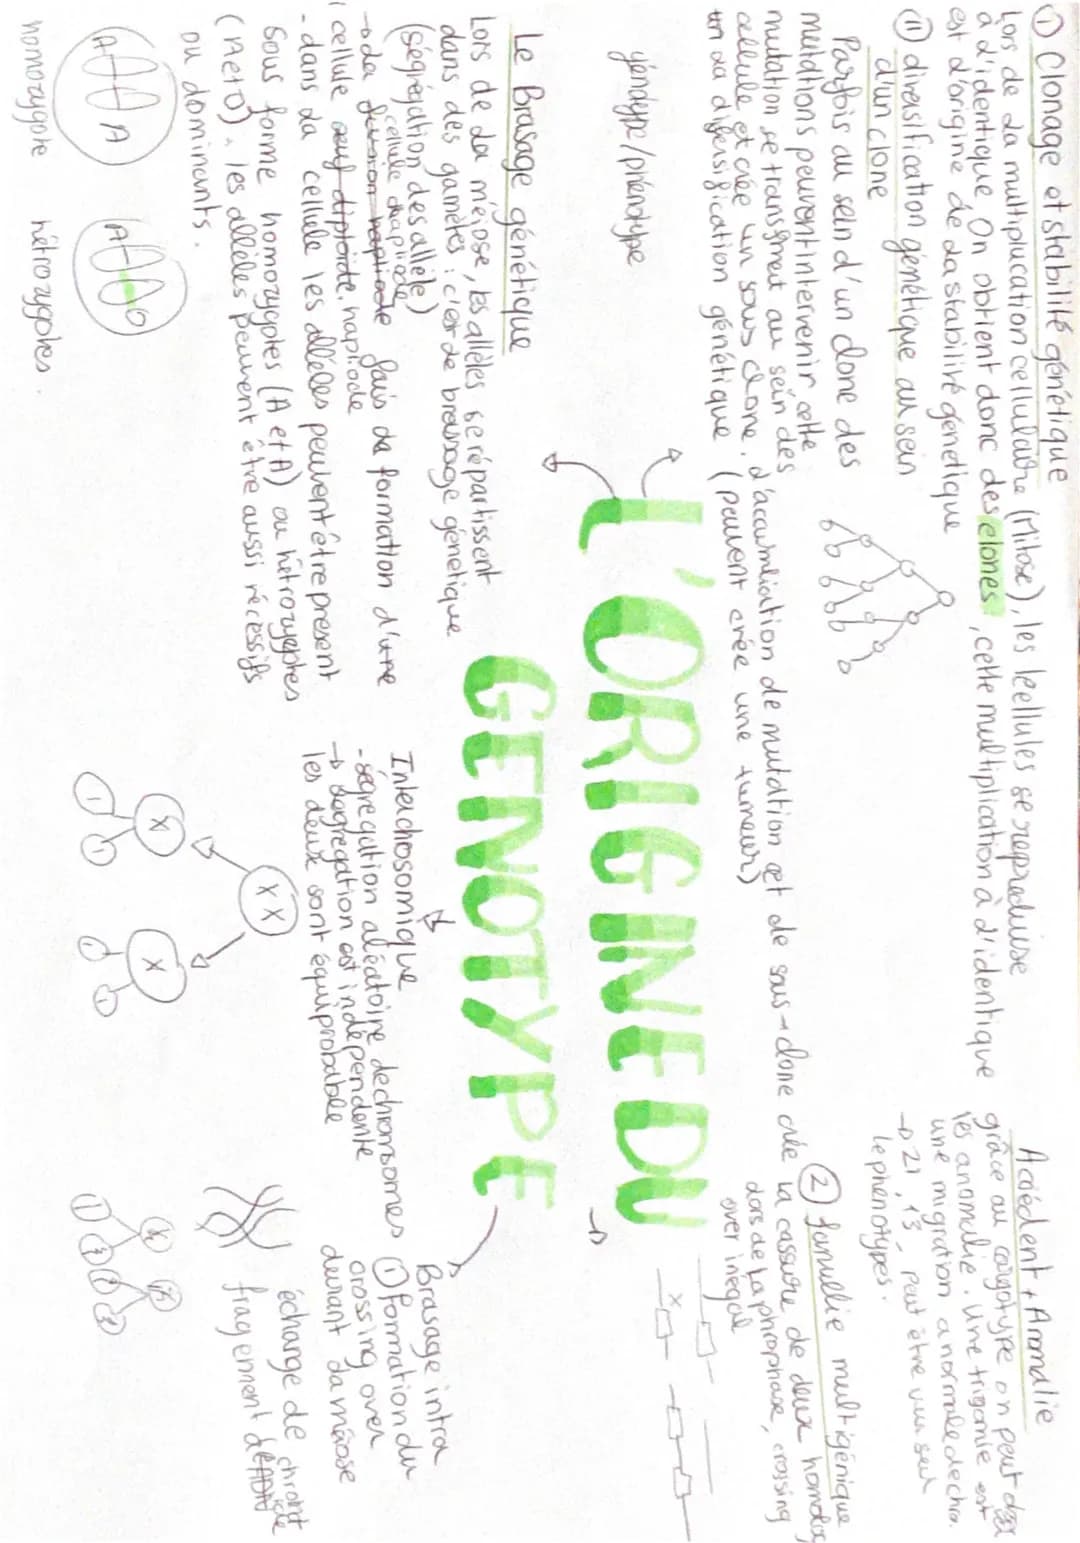 ① Clonage et stabilité génétique
Lors de la multiplucation cellulaire (Mitose), les cellules se repreduise
à d'identique. On obtient donc des clones, cette multiplication à d'identique
est d'origine de la stabilité génétique
⑪ diversification génétique au sein
d'un clone
Parfois au sein d'un clone des
mutations peuvent intervenir cette
mutation se transmet au sein des
cellule et crée un sous clone. d'accumulation de mutation et de sous-clone crée
la diversification génétique (peuvent crée une tumeur)
génotype/phénotype
L'ORIGINE DU
GENOTYPE
Accédent + Anomalie
grâce au caryotype on peut
les anomalie. Une trisomie est
une migration anormale de chro.
→ 21, 13, peut être vu sur
le phenotypes.
② famille multigénique
la cassure de deux homolog
dors de la prophase, crossing
over inégal
Le Brasage génétique
Lors de la méiose, les allèles se répartissent
dans des gamètes : c'est de brassage génétique
(ségrégation des allèle)
cellule haploïde
→ da fusion haploide fais da formation d'une
cellule œuf diploide. haploide
- dans da cellule les allèles peuvent être present
sous forme homozygotes (A et A) ou hétrozygotes
(A et O). les allèles peuvent être aussi récessifs
ou dominants.
A A
A O
homozygote hétrozygotes.
Interchosomique
- ségrégation aléatoire de chromosomes
→ segregation est indépendente
les deux sont équiprobable
X X
X X
Brasage intra
① formation du
crossing over
durant da méiose
échange de chromatide
fragement d'ADN